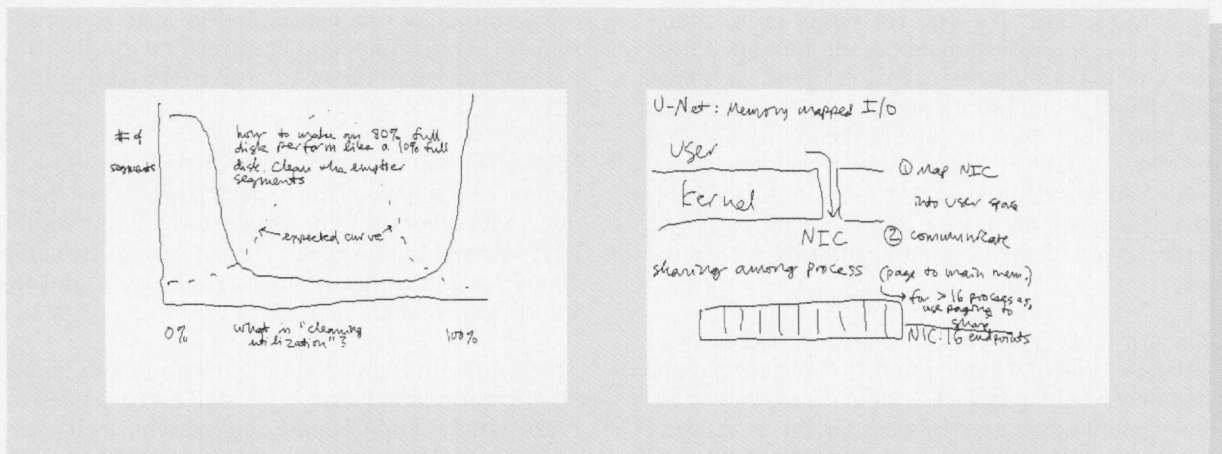 # of
segments
how to make an 80% full
disk perform like a 10% full
disk. Clean the emptier
segments
expected curve
0%
what is "cleaning
utilization"?
100%
U-Net: Memory mapped I/O
User
Kernel
NIC
① Map NIC
into user space
② communicate
sharing among process
(page to main mem.)
for > 16 processes,
use paging to
share
NIC: 16 endpoints